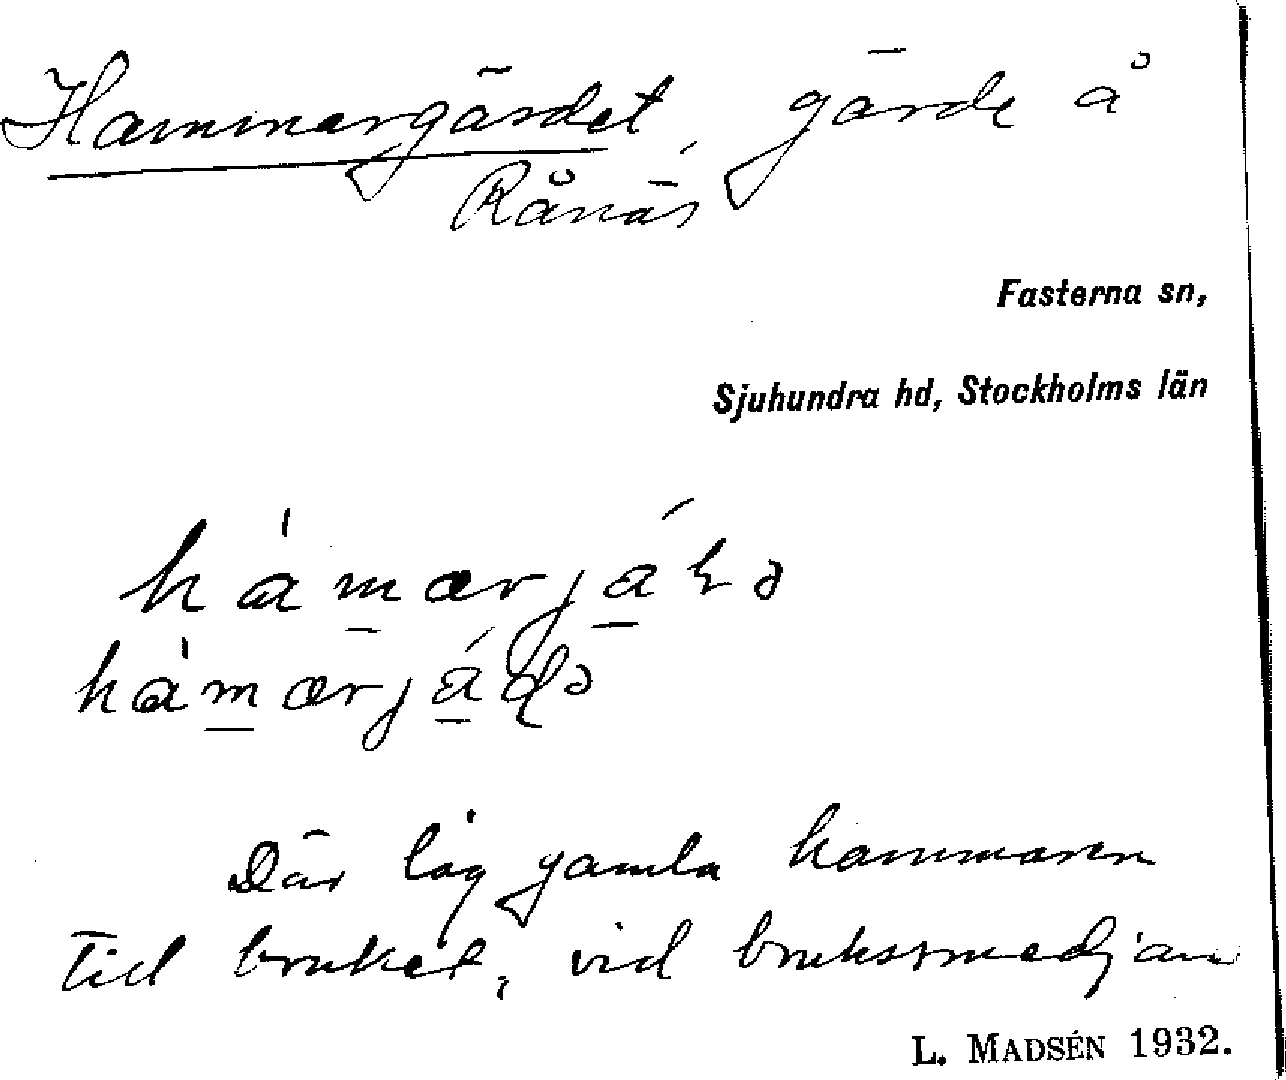 Hammargärdet, gärde å
Rånäs
Fasterna sn,
Sjuhundra hd, Stockholms län
Där låg gamla hammaren
till bruket, vid brukssmedjan
L. MADSÉN 1932.